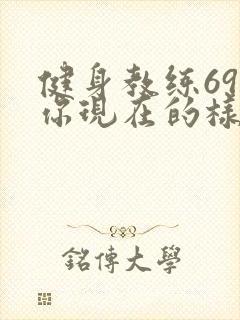 健身教练69
你現在的樣
銘傳大學